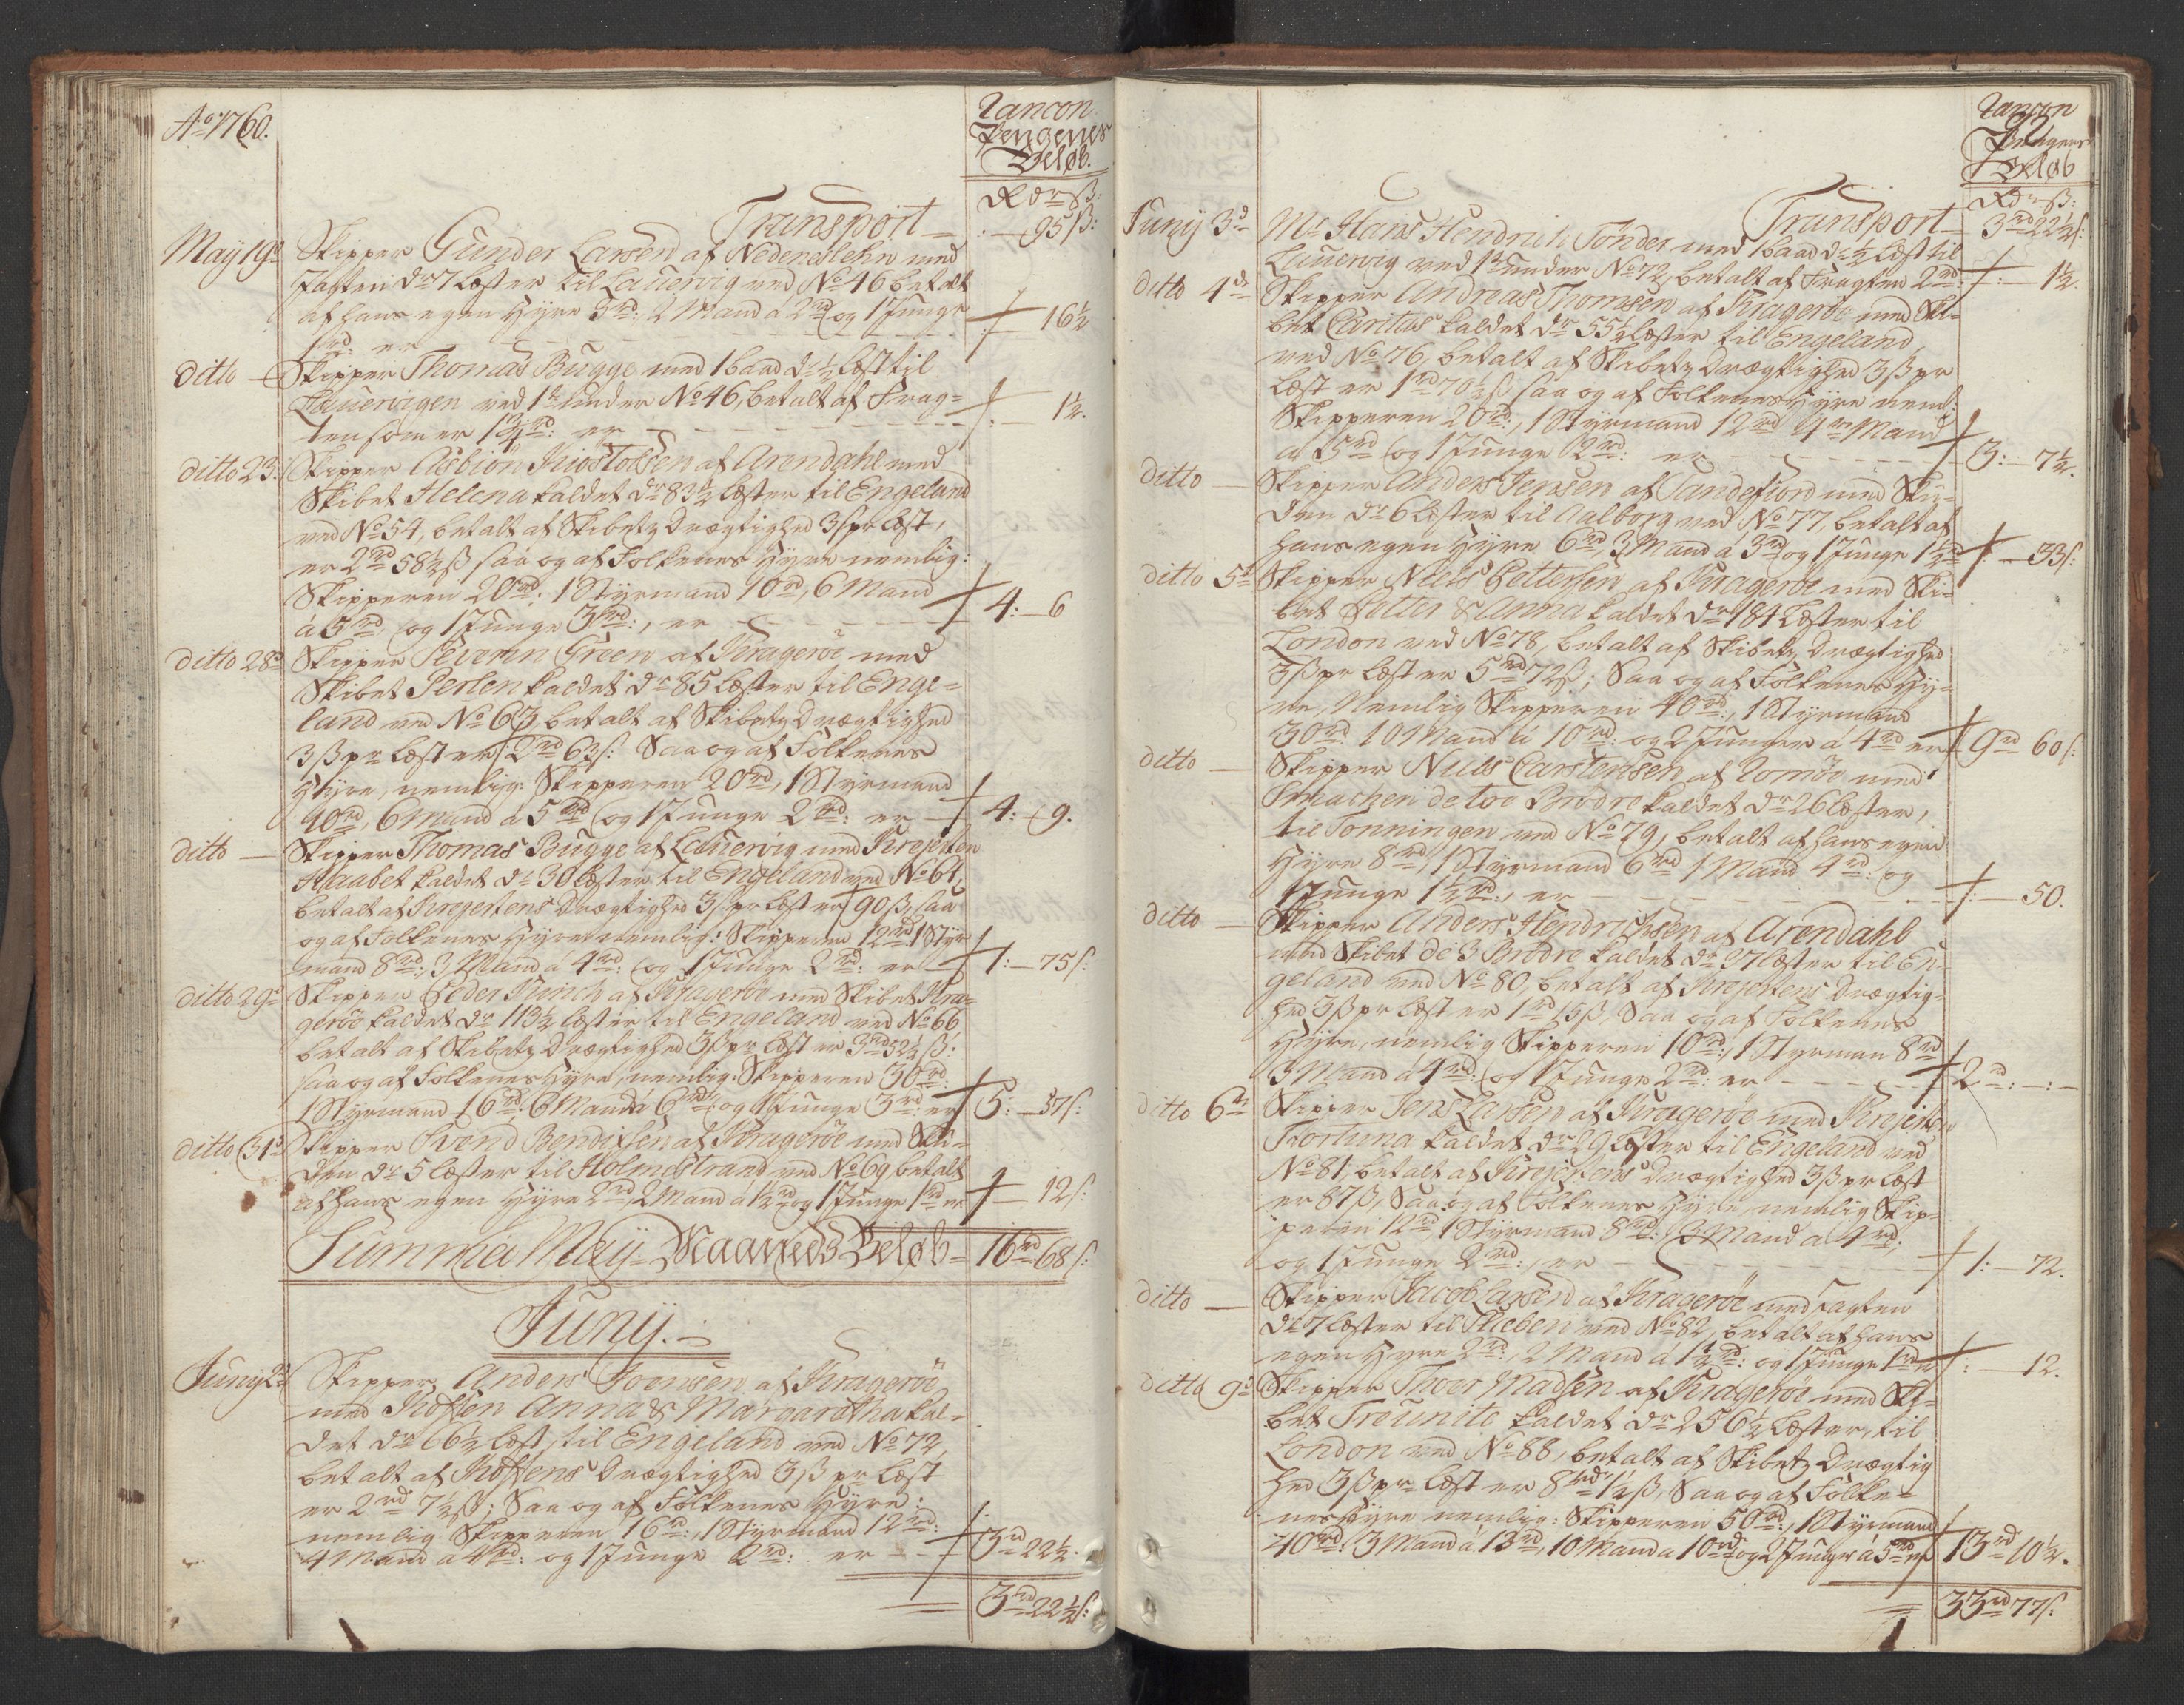 Ao 1760.
Rancon
Pengenes
Beløb.
Rdr ß:
Transport —
95 ß:
May 19d Skipper Gunder Larsen af Nedenes Lehn med
Jagten dr 7 læster til Lauervig ved No 46 betalt
af hans egen Hyre 3rd: 2 Mand á 2rd og 1 Junge
1rd: er — 16½
ditto — Skipper Thomas Bugge med 1 baad dr ½ læst til
Lauervigen ved 1te under No 46, betalt af Frag=
ten som er 1¾rd: er — 1½.
ditto 23: Skipper Asbiön Kiostolsen af Arendahl med
Skibet Helena kaldet dr 83½ læster til Engeland
ved No 54, betalt af Skibets Drægtighed 3ß pr læst,
er 2rd 58½ß saa og af Folkenes Hyre nemlig:
Skipperen 20rd: 1 Styrmand 10rd, 6 Mand
á 5rd og 1 Junge 3rd:, er — 4: — 6
ditto 28d Skipper Severin Green af Kragerøe med
Skibet Perlen kaldet dr 85 læster til Enge=
land ved No 63 betalt af Skibets Drægtighed
3ß pr læst er 2rd 63ß: Saa og af Folkenes
Hyre, nemlig: Skipperen 20rd, 1 Styrmand
10rd, 6 Mand á 5rd og 1 Junge 2rd: er — 4: — 9.
ditto — Skipper Thomas Bugge af Lauervig med Krejerten
Haabet kaldet dr 30 læster til Engeland ved No 64,
betalt af Krejertens Drægtighed 3ß pr læst er 90ß, saa
og af Folkenes Hyre nemlig: Skipperen 12rd 1 Styr
mand 8rd: 3 Mand á 4rd: og 1 Junge 2rd: er — 1: — 75ß:
ditto 29d Skipper Peder Kinch af Kragerøe med Skibet Kra=
gerøe kaldet dr 113½ læster til Engeland ved No 66
betalt af Skibets Drægtighed 3ß pr læst er 3rd 52½ß:
saa og af Folkenes Hyre, nemlig: Skipperen 30rd:
1 Styrmand 16rd: 6 Mand á 6rd: og 1 Junge 3rd: er 5: — 37ß:
ditto 31d Skipper Svend Bendixsen af Kragerøe med Ski=
den dr 5 læster til Holmestrand ved No 69, betalt
af hans egen Hyre 2rd, 2 Mand á 1½rd og 1 Junge 1rd er — 12ß:
Summa Maÿ Maaneds Beløb = 16rd 68ß:
Junÿ.
Juny 2d Skipper Anders Joensen af Kragerøe
med Koffen Anna & Margaretha kal=
det dr 66½ læst, til Engeland ved No 72,
betalt af Koffens Drægtighed 3ß pr læst
er 2rd 7½ß; Saa og af Folkenes Hyre:
nemlig Skipperen 16rd:, 1 Styrmand 12rd:
4 Mand á 4rd: og 1 Junge 2rd: er — 3rd 22½.
3rd 22½ß:
Rancon
Pengenes
Beløb
Rdr ß:
Transport — 3rd 22½ß:
Juny 3d Mr Hans Hendrich Tønder med 1 baad dr ½ læst til
Lauervig ved 1te under No 72, betalt af Fragten 2rd: — 1½.
ditto 4de Skipper Andreas Thomsen af Kragerøe med Ski=
bet Caritas kaldet dr 55½ læster til Engeland
ved No 76, betalt af Skibets Drægtighed 3ß pr
læst er 1rd 70½ß saa og af Folkenes Hyre neml:
Skipperen 20rd:, 1 Styrmand 12rd 4re Mand
á 5rd og 1 Junge 2rd: er — 3: — 7½.
ditto — Skipper Anders Jensen af Sandefiord med Ski=
den dr 6 læster til Aalborg ved No 77, betalt af
hans egen Hyre 6rd, 3 Mand á 3rd og 1 Junge 1½rd — 33ß:
ditto 5t Skipper Niels Pettersen af Kragerøe med Ski=
bet Petter & Anna kaldet dr 184 læster til
London ved No 78, betalt af Skibets Drægtighed
3ß pr læst er 5rd 72ß; Saa og af Folkenes Hy=
re, Nemlig Skipperen 40rd:, 1 Styrmand
30rd 10 Mand á 10rd: og 2 Junger á 4rd er 9rd 60ß:
ditto — Skipper Niels Carstensen af Romøe med
Smachen de toe Brødre kaldet dr 26 læster,
til Tonningen ved No 79, betalt af hans egen
Hyre 8rd, 1 Styrmand 6rd 1 Mand 4rd: og
1 Junge 1½rd:, er — 50.
ditto — Skipper Anders Hendrichsen af Arendahl
med Skibet de 3 Brødre kaldet dr 37 læster til En=
geland ved No 80, betalt af Krejertens Drægtig=
hed 3ß pr læst er 1rd 15ß, Saa og af Folkenes
Hyre, nemlig Skipperen 10rd:, 1 Styrman 8rd
3 Mand á 4rd: og 1 Junge 2rd: er — 2rd: — : —
ditto 6te Skipper Jens Larsen af Kragerøe med Krejerten
Fortuna kaldet dr 29 læster til Engeland ved
No 81, betalt af Krejertens Drægtighed 3ß pr læst
er 87ß, Saa og af Folkenes Hyre, nemlig Skip=
peren 12rd 1 Styrmand 8rd: 3 Mand á 4rd:
og 1 Junge 2rd:, er — 1: — 72.
ditto — Skipper Jacob Larsen af Kragerøe med Jagten
dr 7 læster til Flieben ved No 82, betalt af hans
egen Hyre 2rd:, 2 Mand á 1½rd: og 1 Junge 1rd er — 12.
ditto 9d Skipper Thoer Madsen af Kragerøe med Ski=
bet Treunite kaldet dr 256½ læster, til
London ved No 88, betalt af Skibets Drægtig
hed 3ß pr læst er 8rd 1½ß, Saa og af Folke=
nes Hyre nemlig: Skipperen 50rd:, 1 Styrmand
40rd: 3 Mand á 13rd, 10 Mand á 10rd og 2 Junger á 5rd er 13rd 10½.
33rd 77ß: